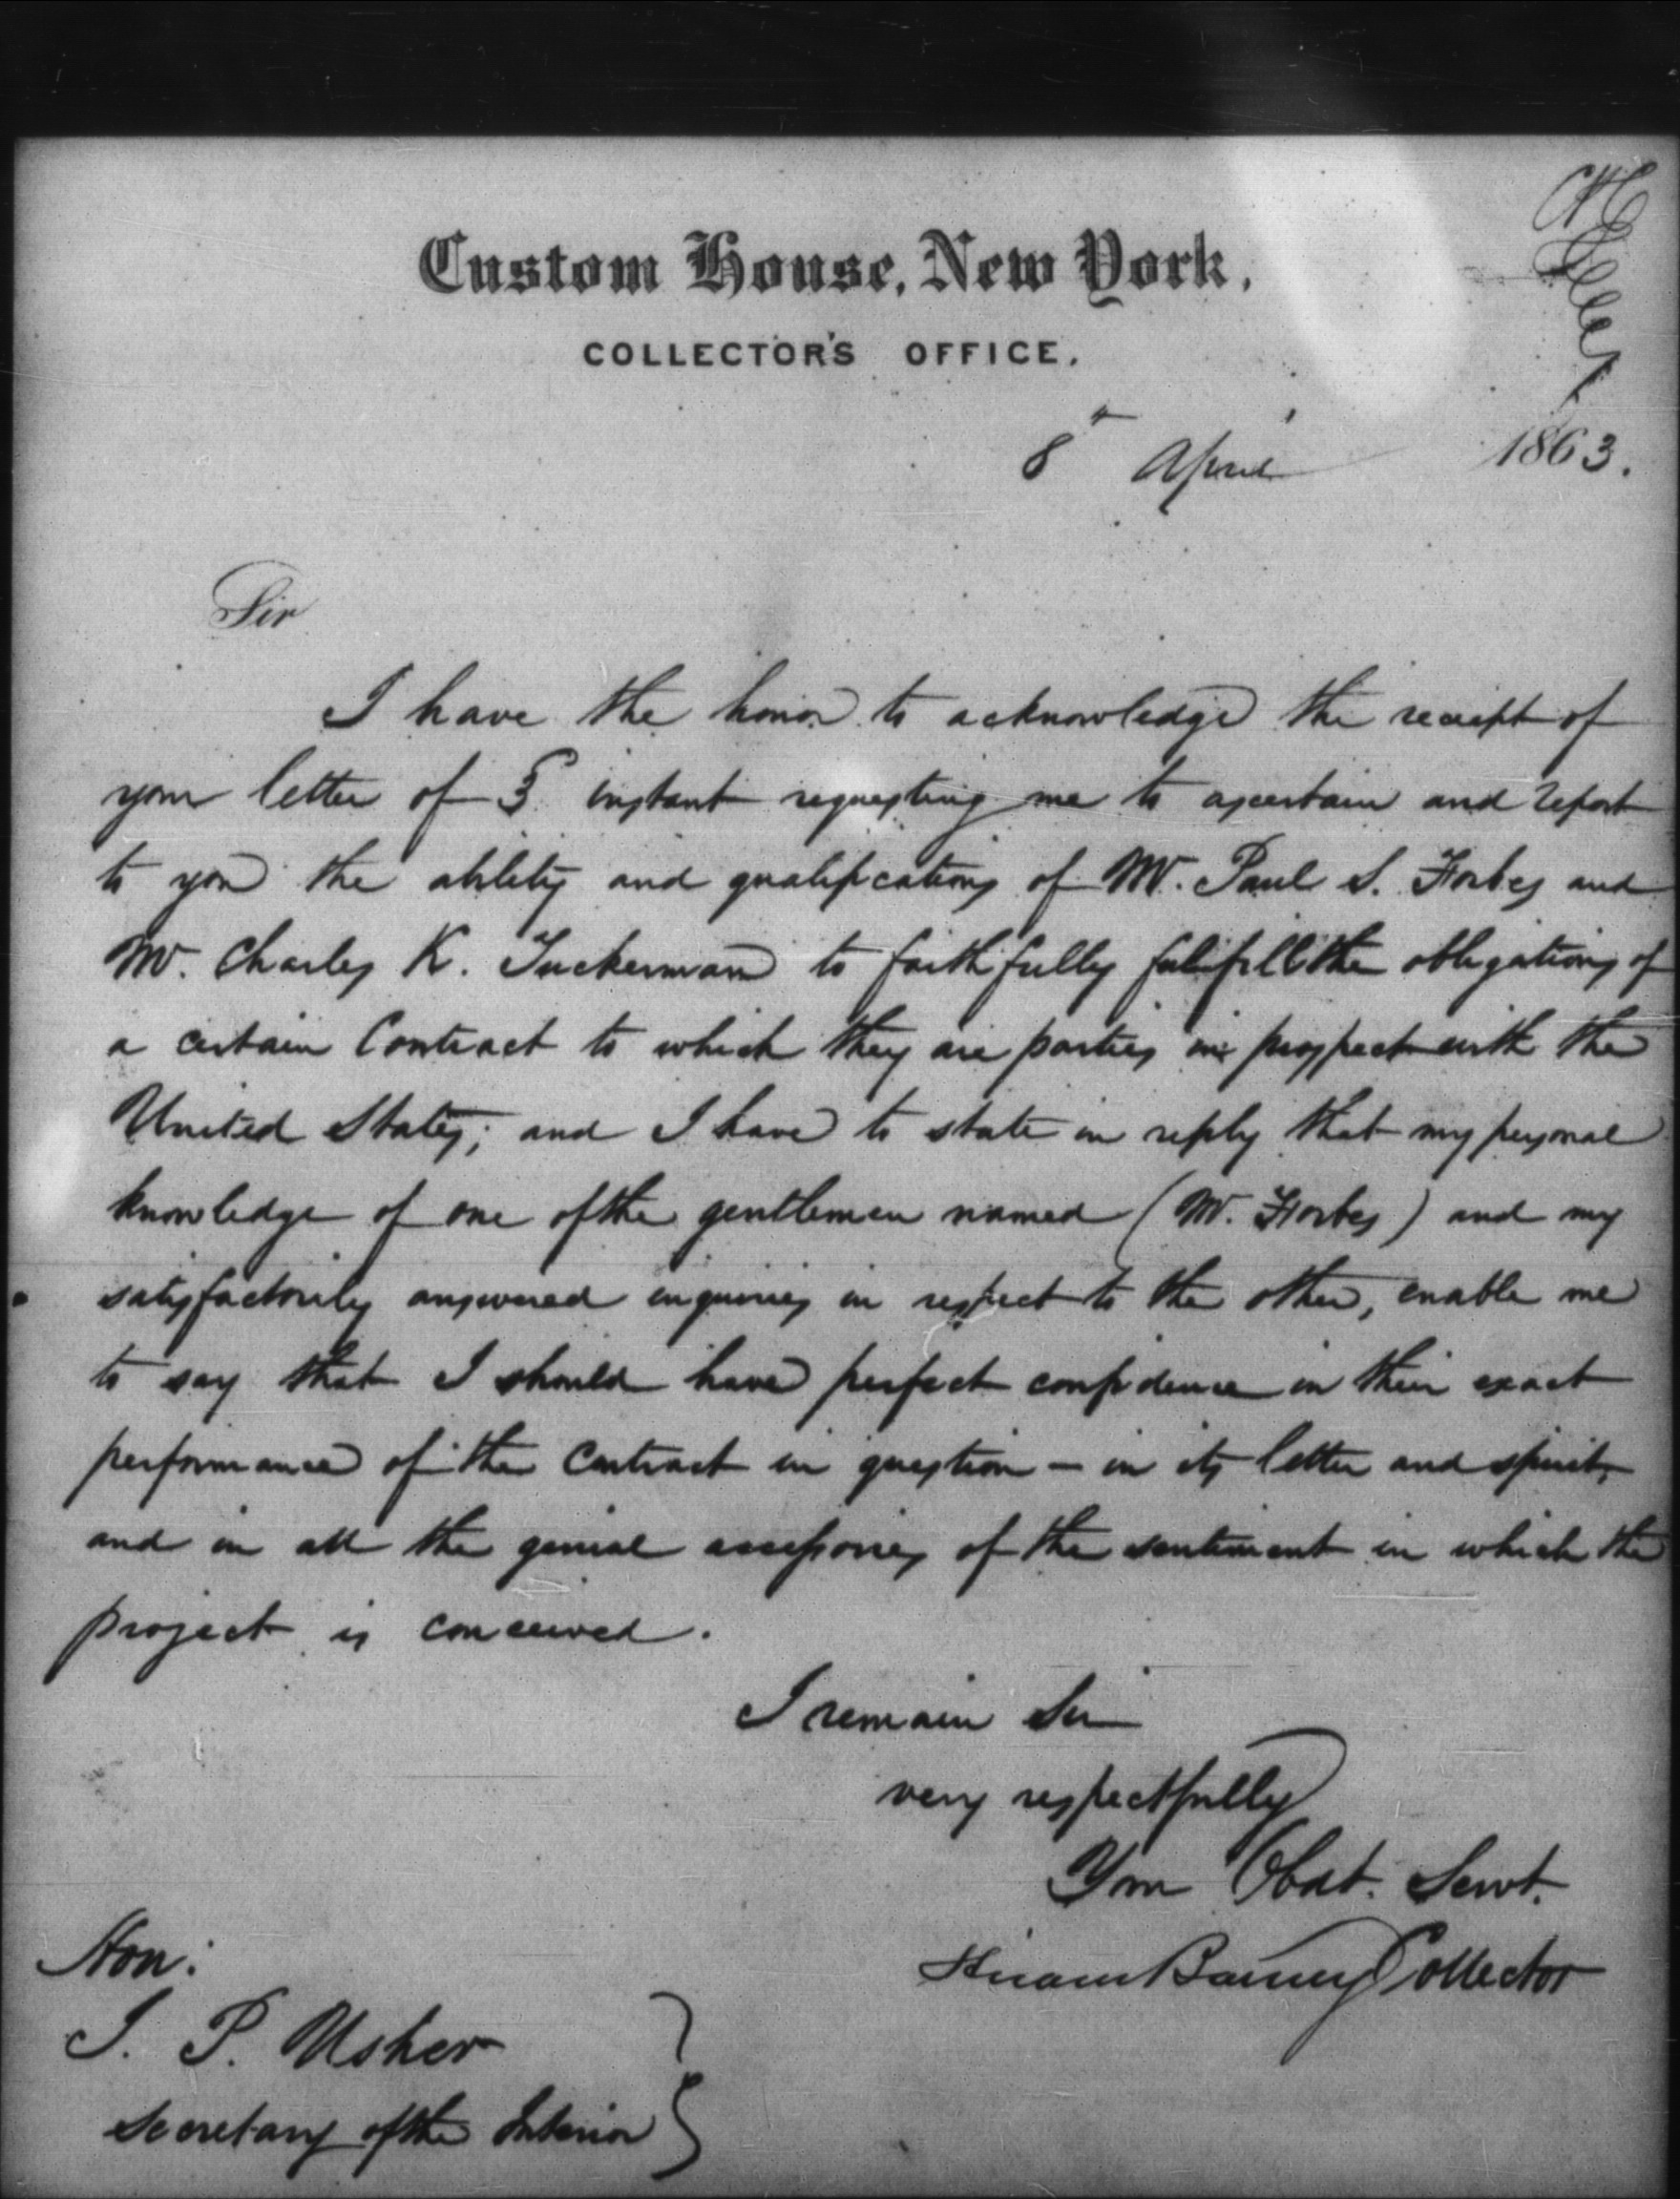 Custom House, New York,
COLLECTOR'S OFFICE.
8th April 1863.
Sir
I have the honor to acknowledge the receipt of
your letter of 3d instant requesting me to ascertain and report
to you the ability and qualifications of Mr. Paul S. Forbes and
Mr. Charles K. Tuckerman to faithfully fulfill the obligations of
a certain Contract to which they are parties in prospect with the
United States; and I have to state in reply that my personal
knowledge of one of the gentlemen named (Mr. Forbes) and my
satisfactorily answered inquiries in respect to the other, enable me
to say that I should have perfect confidence in their exact
performance of the Contract in question - in its letter and spirit,
and in all the genial accessories of the sentiment in which the
project is conceived.
I remain Sir
very respectfully
Your Obdt. Servt.
Hiram Barney Collector
Hon:
J. P. Usher
Secretary of the Interior